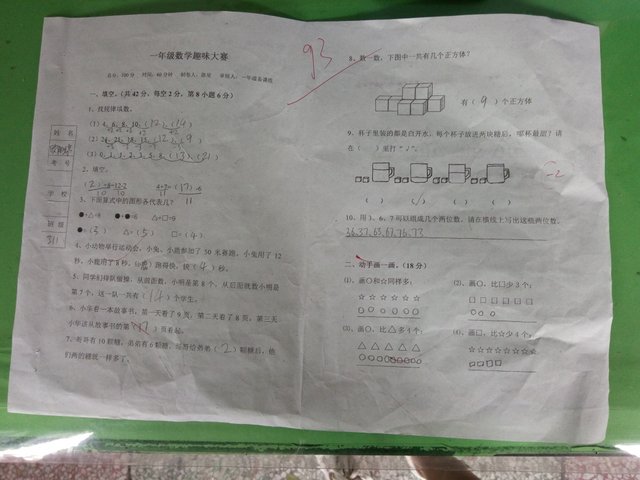 一年级数学趣味大赛
93
总分：100分 时间：60分钟
一年级备课组
一、填空。（共42分，每空2分，第8小题6分）
1、找规律填数。
(1) 4、6、8、10、（12）、（14）
（12）、（9）
（13）、（21）
2、填空。
（2）+8=12-2 4+7=（17）-6
10 10 11 11
3、下图算式中的图形各代表几？
●+△=8 ●+●=6 △+□=9
●=（3） △=（5） □=（4）
4、小动物举行运动会，小兔、小鹿参加了50米赛跑。小兔用了12
秒，小鹿用了8秒，（鹿）跑得快，快（4）秒。
5、同学们排队做操，从前面数，小明是第8个，从后面数小明是
第7个，这一队一共有（14）个学生。
6、小华看一本故事书，第一天看了9页，第二天看了8页，第三天
小华该从故事书的第（17）页看起。
7、哥哥有10颗糖，弟弟有6颗糖，哥哥给弟弟（2）颗糖后，他
们两的糖就一样多了。
姓名
考号
学校
班级
311
8、数一数，下图中一共有几个正方体？
有（9）个正方体
9、杯子里装的都是白开水，每个杯子放进两块糖后，哪杯最甜？请
在（ ）里打
-2
（ ） （ ） （ ） （ ）
10、用3、6、7可以组成几个两位数，请在横线上写出这些两位数。
36、37、63、67、76、73
二、动手画一画。（18分）
(1)、画○和☆同样多： (2)、画○，比□少3个：
☆☆☆☆☆☆ □□□□□□
(3)、画○，比△多4个： (4)、画□，比☆少4个：
△△△△△ ☆☆☆☆☆☆☆☆